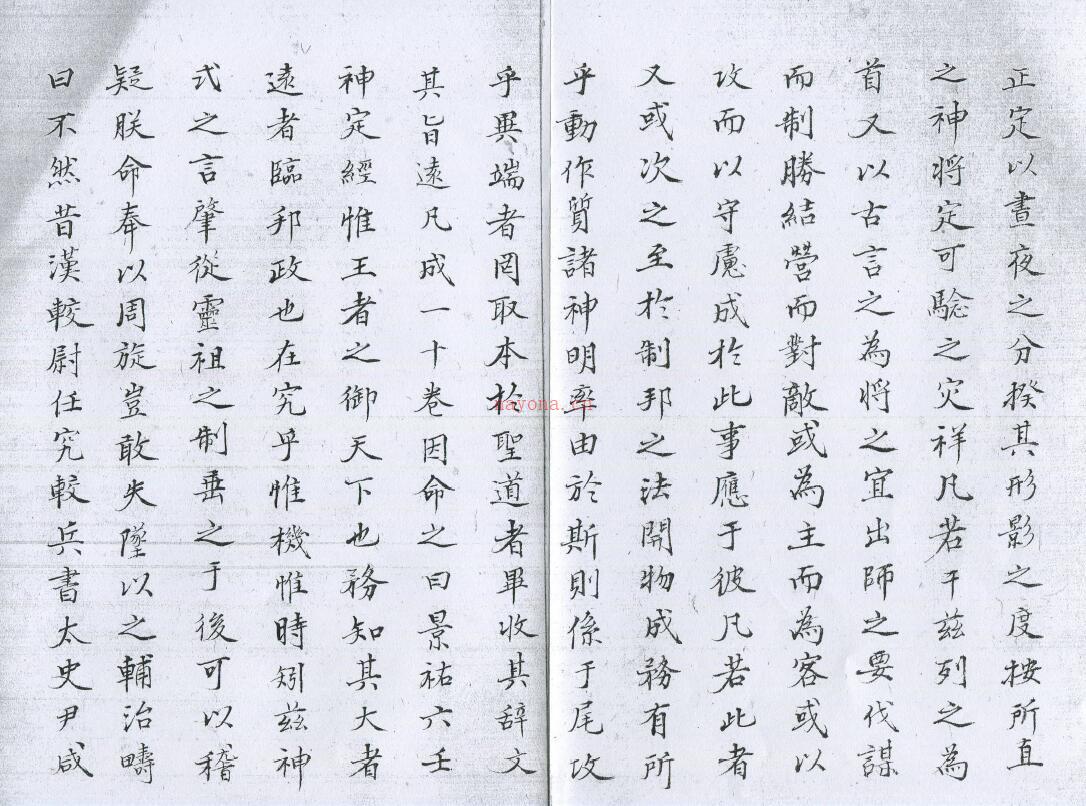 正定以晝夜之分揆其形影之度按所直
之神將定可驗之灾祥凡若干茲列之為
首又以古言之為將之宜出師之要伐謀
而制勝結營而對敵或為主而為客或以
攻而以守慮成於此事應于彼凡若此者
又或次之至於制邦之法開物成務有所
乎動作質諸神明率由於斯則係于尾攻
乎異端者罔取本於聖道者畢收其辞文
其旨遠凡成一十卷因命之曰景祐六壬
神定經惟王者之御天下也務知其大者
遠者臨邦政也在究乎惟機惟時矧茲神
式之言肇從靈祖之制垂之于後可以稽
疑朕命奉以周旋豈敢失墜以之輔治疇
曰不然昔漢較尉任究較兵書太史尹咸
nayona.cn